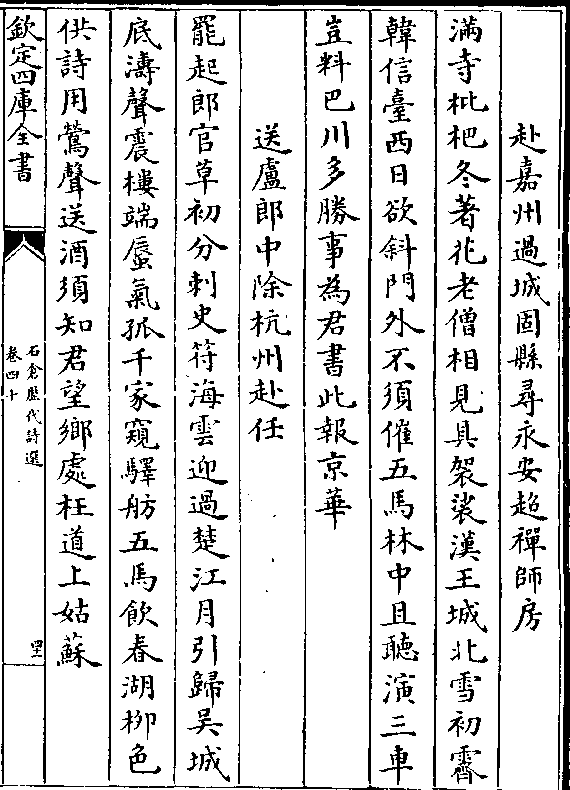 赴嘉州過城固縣尋永安超禪師房
滿寺枇杷冬著花老僧相見具袈裟漢王城北雪初霽
韓信臺西日欲斜門外不須催五馬林中且聽演三車
豈料巴川多勝事為君書此報京華
送盧郎中除杭州赴任
罷起郎官草初分刺史符海雲迎過楚江月引歸吴城
底濤聲震樓端蜃氣孤千家窺驛舫五馬飲春湖栁色
供詩用鶯聲送酒須知君望鄉處枉道上姑蘇
欽定四庫全書
石倉歷代詩選
卷四十